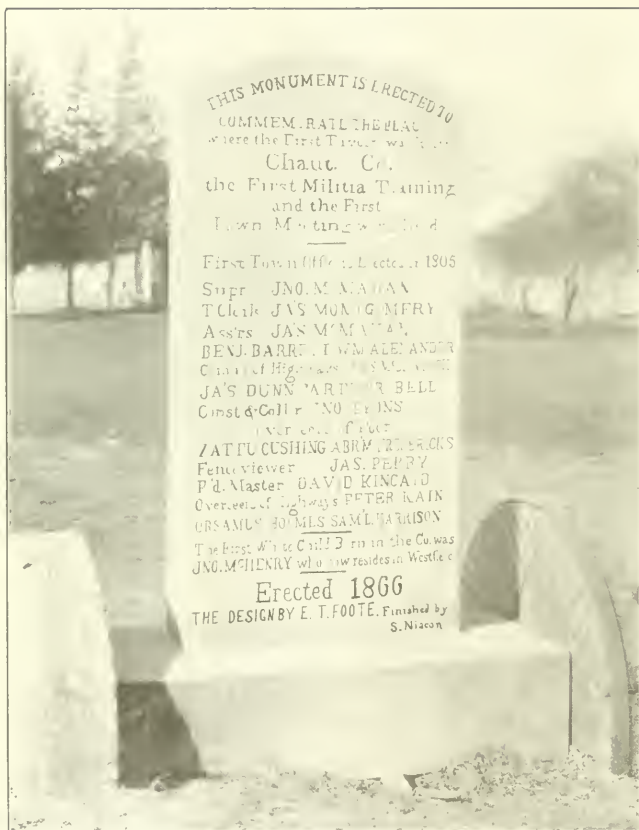 THIS MONUMENT IS ERECTED TO
COMMEMORATE THE PLACE
where the First Tavern
Chaut. Co.
the First Militia Training
and the First
Town Meeting were held
First Town Officers Elected 1805
Supr JNO. M'MAHAN
T Clerk JA'S MONTGOMERY
Ass'rs JA'S M'MAHAN
BENJ. BARRETT WM ALEXANDER
of Highways
JA'S DUNN ARTHUR BELL
Const & Coll'r JNO.
Overseers of Poor
ZATTU CUSHING ABRM FREDERICKS
Fence viewer JAS. PERRY
P'd. Master DAVID KINCAID
Overseers of Highways PETER KAIN
ORSAMUS HOLMES SAML HARRISON
The First White Child Born in the Co. was
JNO. McHENRY who now resides in Westfield
Erected 1866
THE DESIGN BY E. T. FOOTE. Finished by
S. Niacon